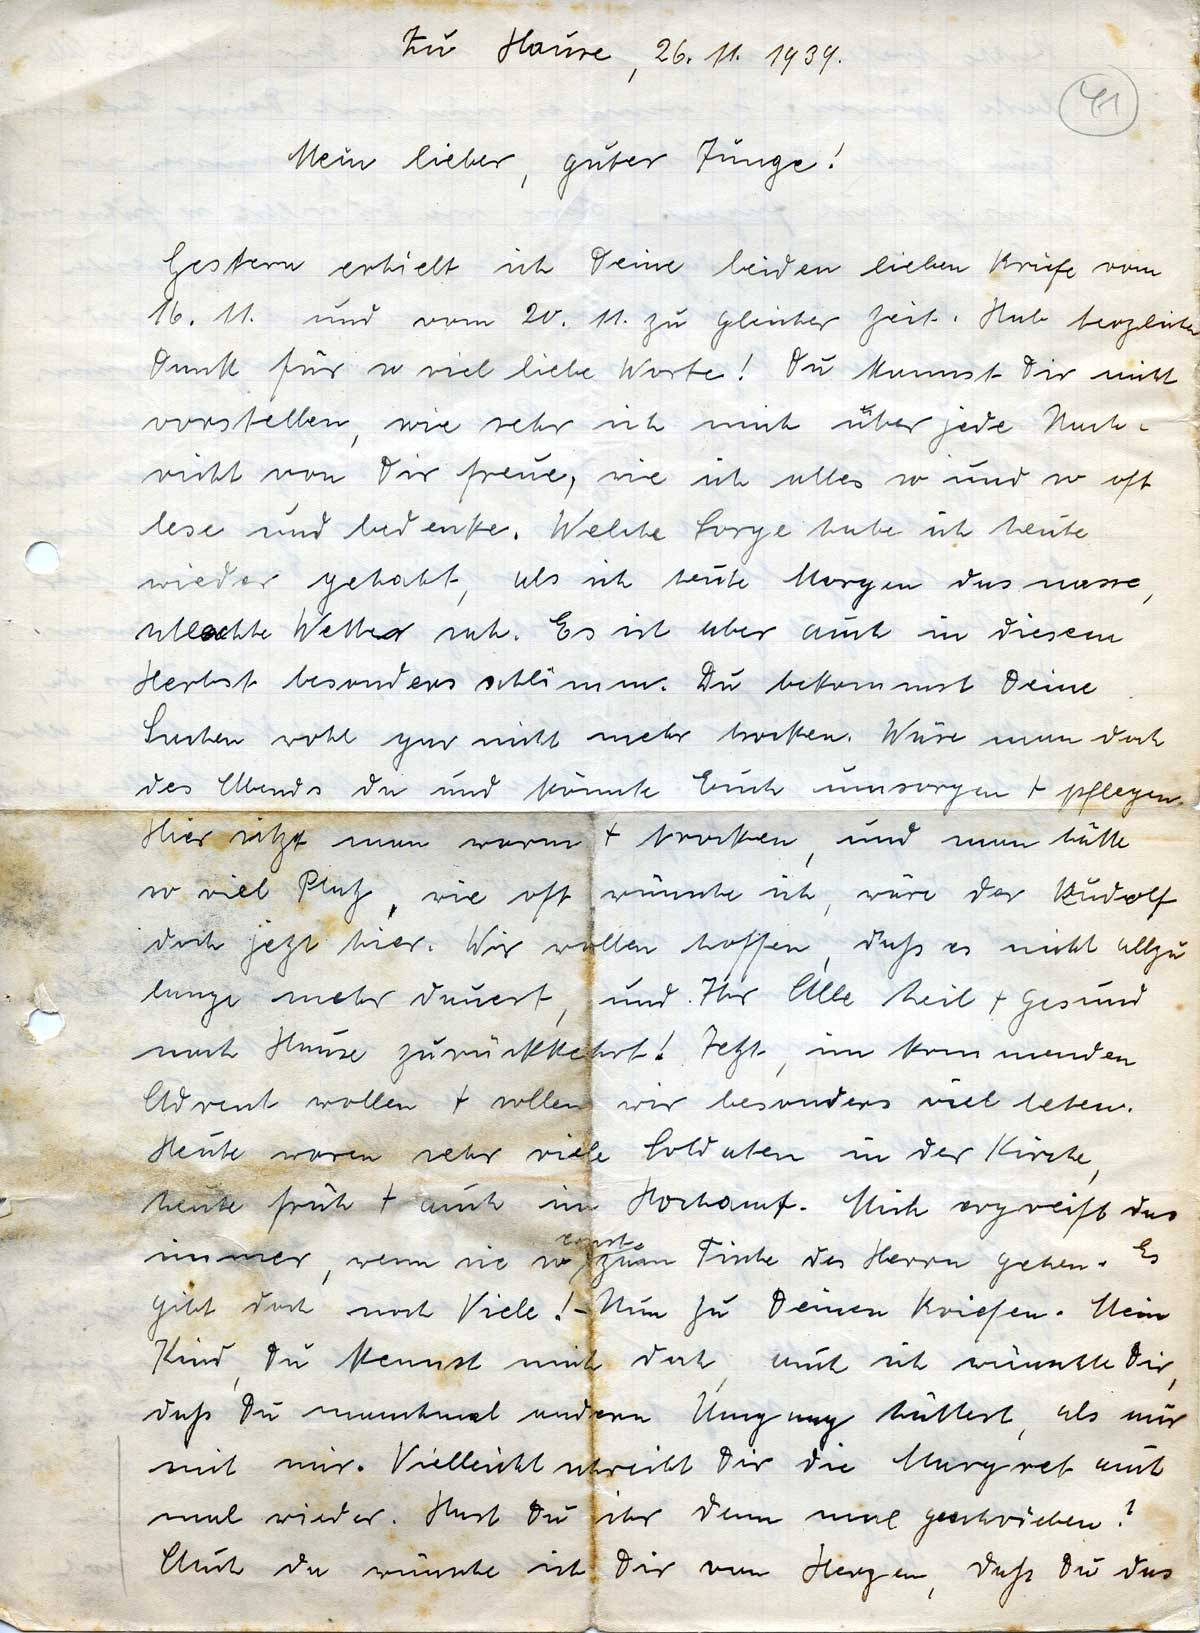 Zu Hause, 26. 11. 1939.
41
Mein lieber, guter Junge!
Gestern erhielt ich Deine beiden lieben Briefe vom
16. 11. und vom 20. 11. zu gleicher Zeit. Hab herzlichen
Dank für so viel liebe Worte! Du kannst Dir nicht
vorstellen, wie sehr ich mich über jede Nach-
richt von Dir freue, wie ich alles so und so oft
lese und bedenke. Welche Sorge habe ich heute
wieder gehabt, als ich heute Morgen das nasse,
schlechte Wetter sah. Es ist aber auch in diesem
Herbst besonders schlimm. Du bekommst Deine
Sachen wohl gar nicht mehr trocken. Wäre man doch
des Abends da und könnte Euch umsorgen + pflegen.
Hier sitzt man warm + trocken, und man hätte
so viel Platz, wie oft wünsche ich, wäre der Rudolf
doch jetzt hier. Wir wollen hoffen, daß es nicht allzu
lange mehr dauert, und Ihr Alle heil + gesund
nach Hause zurückkehrt! Jetzt, im kommenden
Advent wollen + sollen wir besonders viel beten.
Heute waren sehr viele Soldaten in der Kirche,
heute früh + auch im Hochamt. Mich ergreift das
immer, wenn sie so ernst zum Tische des Herrn gehen. Es
gibt doch noch Viele! - Nun zu Deinen Briefen. Mein
Kind, Du kennst mich doch, auch ich wünschte Dir,
daß Du manchmal andern Umgang hättest, als nur
mit mir. Vielleicht schreibt Dir die Margret auch
mal wieder. Hast Du ihr denn mal geschrieben?
Auch da wünsche ich Dir von Herzen, daß Du das